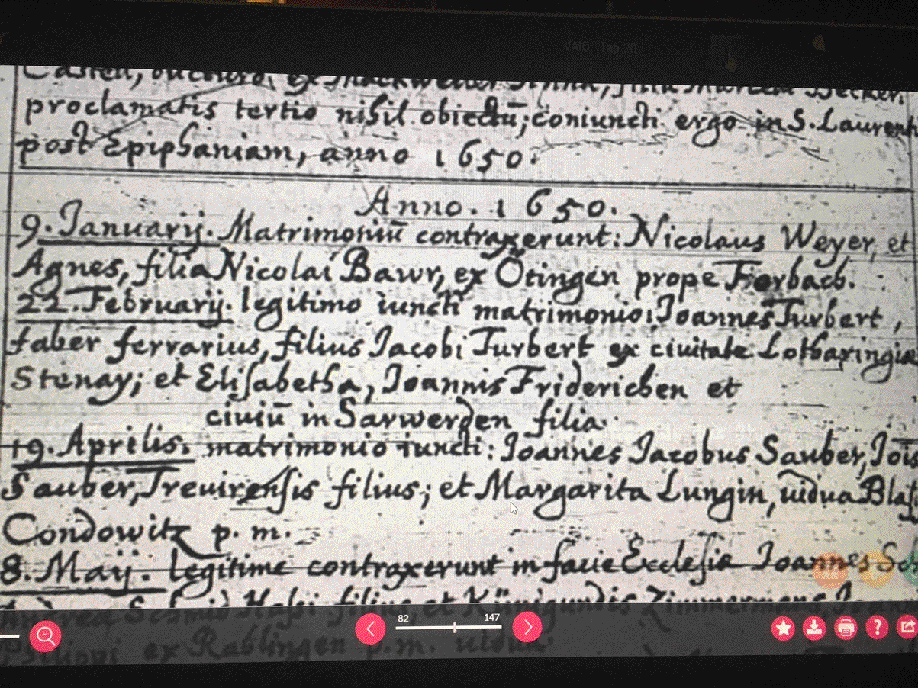 proclamatis tertio nihil obiectū; coniuncti ergo in S. Laurent
post Epiphaniam, anno 1650.
Anno. 1650.
9. Januarij. Matrimoniū contraxerunt: Nicolaus Weyer, et
Agnes, filia Nicolai Bawr, ex Ötingen prope Forbach.
22. Februarij. legitimo iuncti matrimonio: Joannes Turbert,
faber ferrarius, filius Jacobi Turbert ex ciuitate Lotharingiæ
Stenay; et Elisabetha, Joannis Friderichen et
ciuiū in Sarwerden filia.
19. Aprilis. matrimonio iuncti: Joannes Jacobus Sauber, Jois
Sauber, Treuirensis filius; et Margarita Lungin, uidua
Condowitz p. m.
8. Maij. legitime contraxerunt in facie Ecclesiæ Joannes
82 147
ex Rablingen p. m. uidua